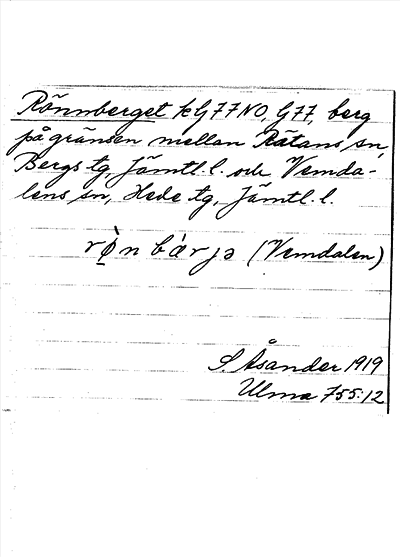 Rönnberget kG77NO, G77, berg
på gränsen mellan Rätans sn,
Bergs tg, Jämtl. l. och Vemda-
lens sn, Hede tg, Jämtl. l.
rø̣̀n bárjə (Vemdalen)
S. Åsander 1919
Ulma 755:12